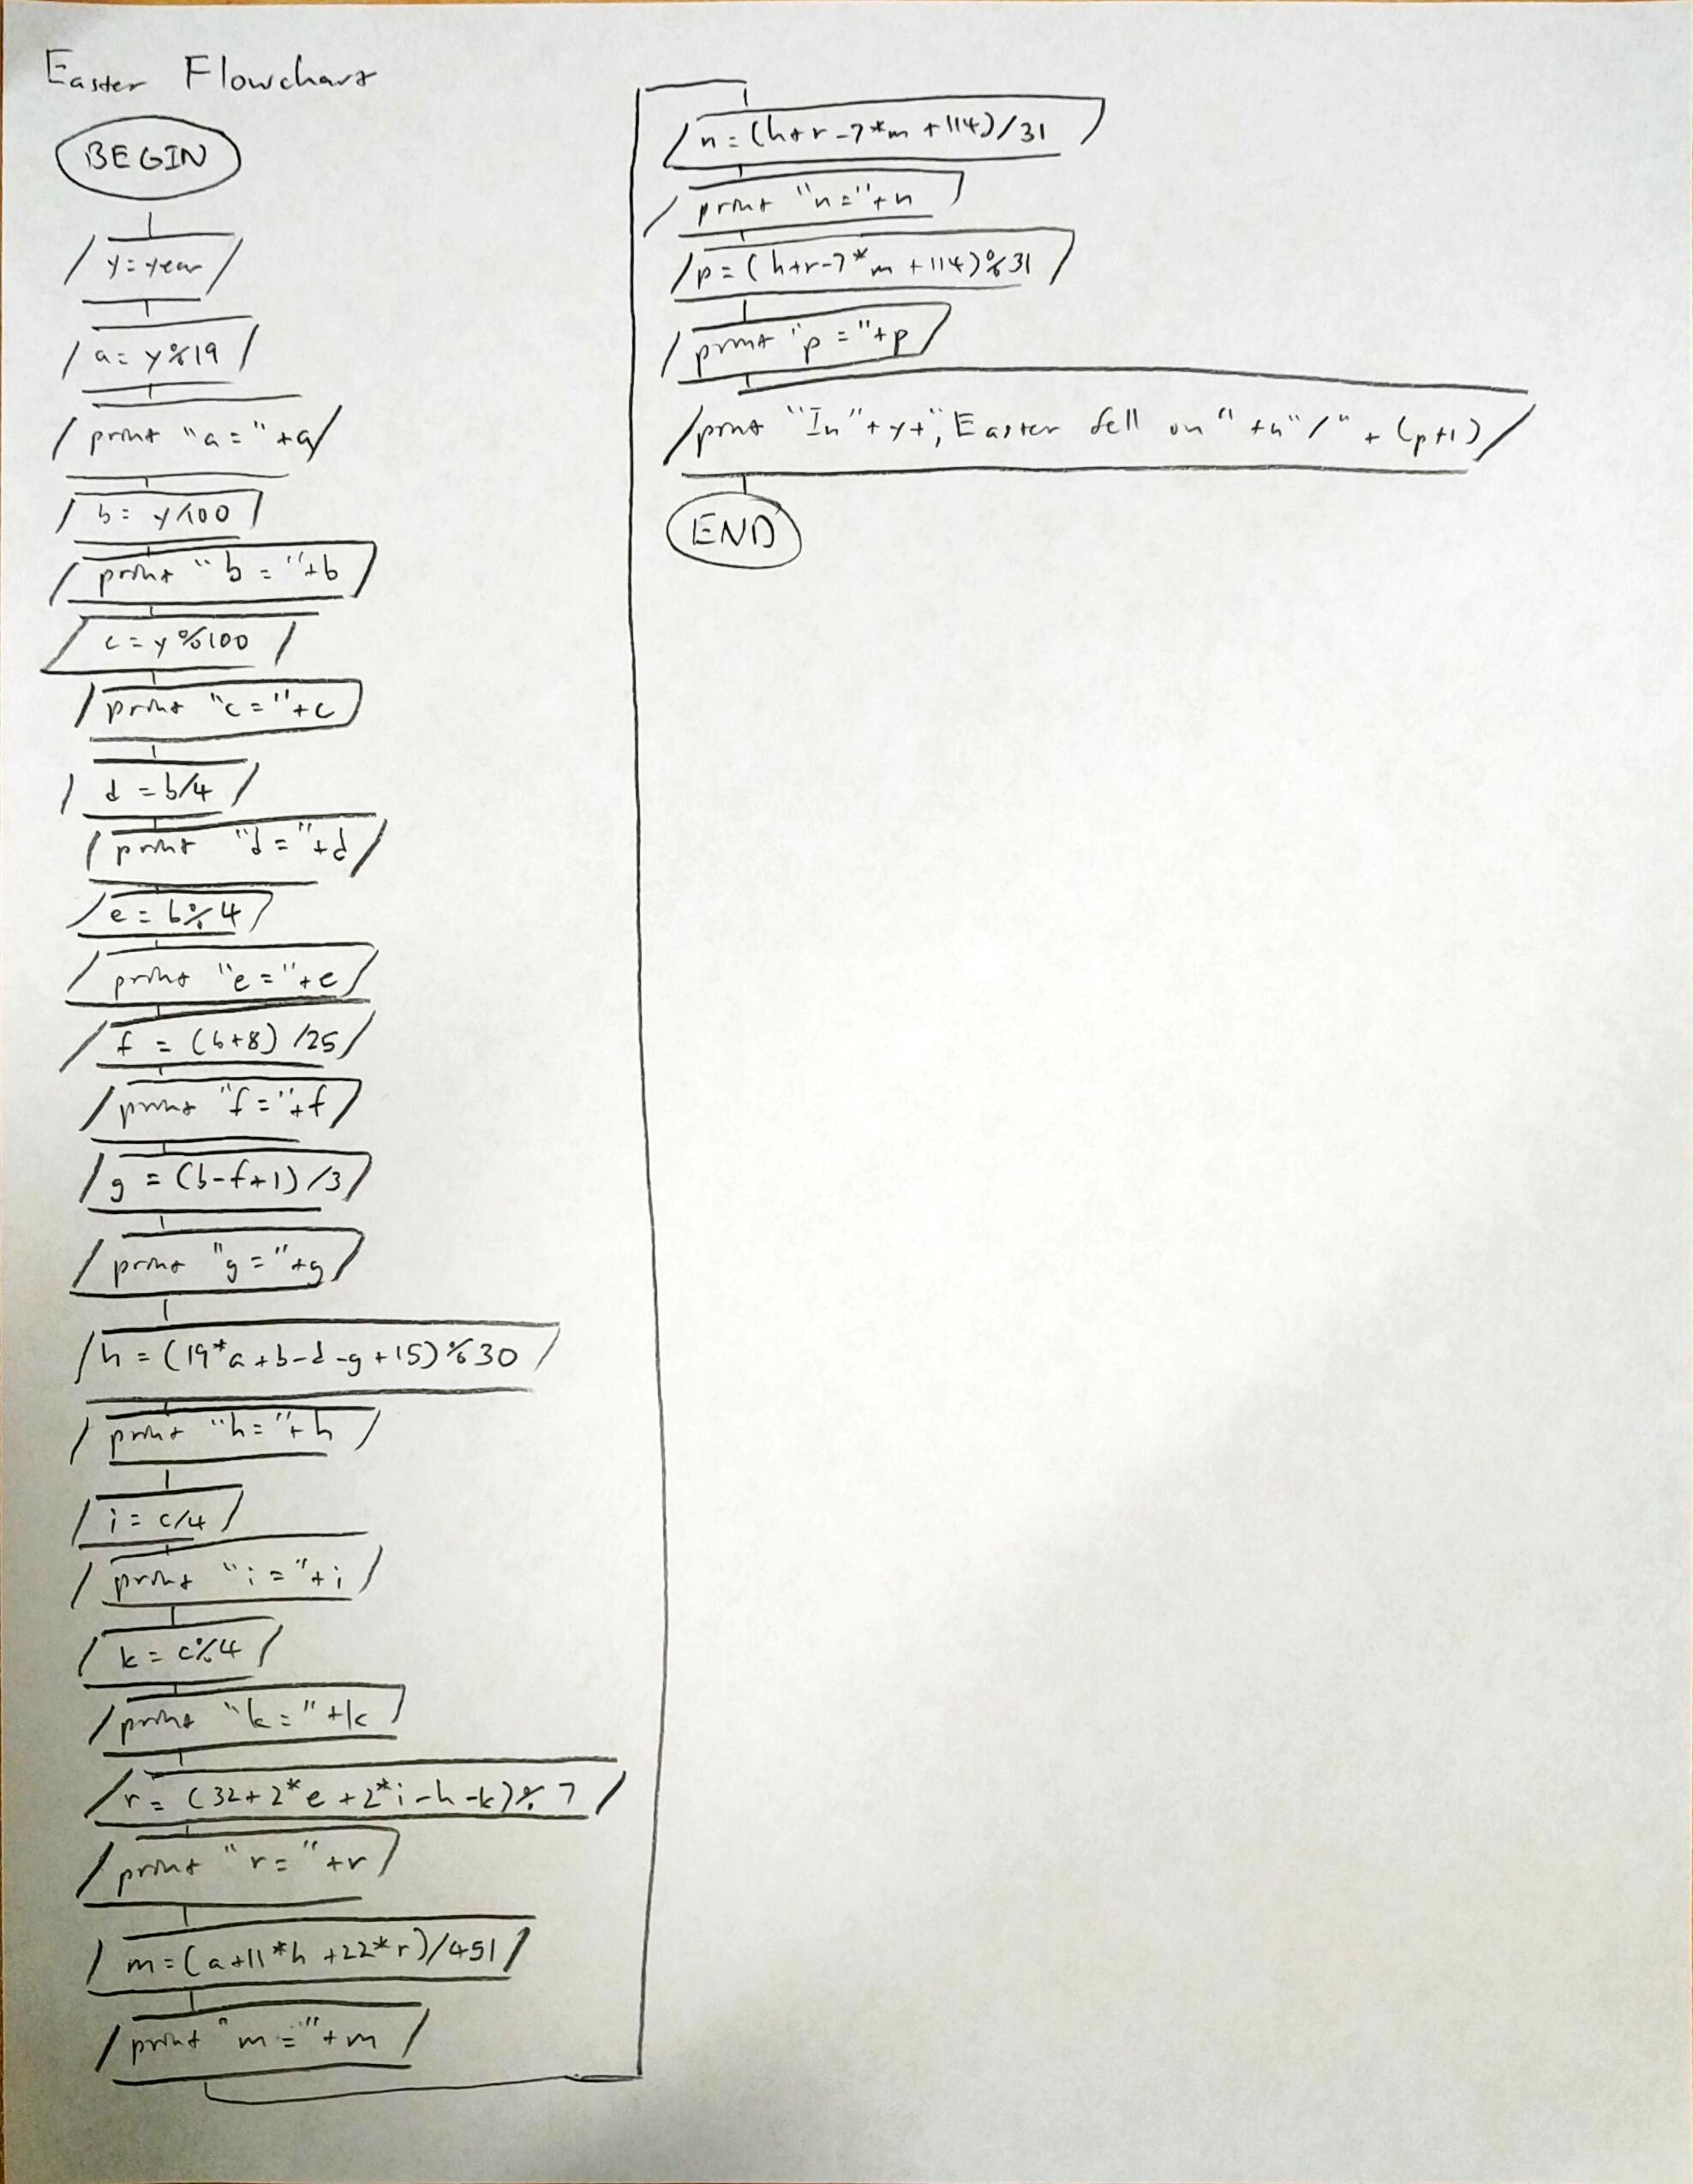 Easter Flowchart
BEGIN
y=year
a= y%19
print "a="+a
b= y/100
print "b="+b
c=y%100
print "c="+c
d=b/4
print "d="+d
e=b%4
print "e="+e
f=(b+8)/25
print "f="+f
g=(b-f+1)/3
print "g="+g
h=(19*a+b-d-g+15)%30
print "h="+h
i=c/4
print "i="+i
k=c%4
print "k="+k
r=(32+2*e+2*i-h-k)%7
print "r="+r
m=(a+11*h+22*r)/451
print "m="+m
n=(h+r-7*m+114)/31
print "n="+n
p=(h+r-7*m+114)%31
print "p="+p
print "In"+y+", Easter fell on"+n"/"+(p+1)
END